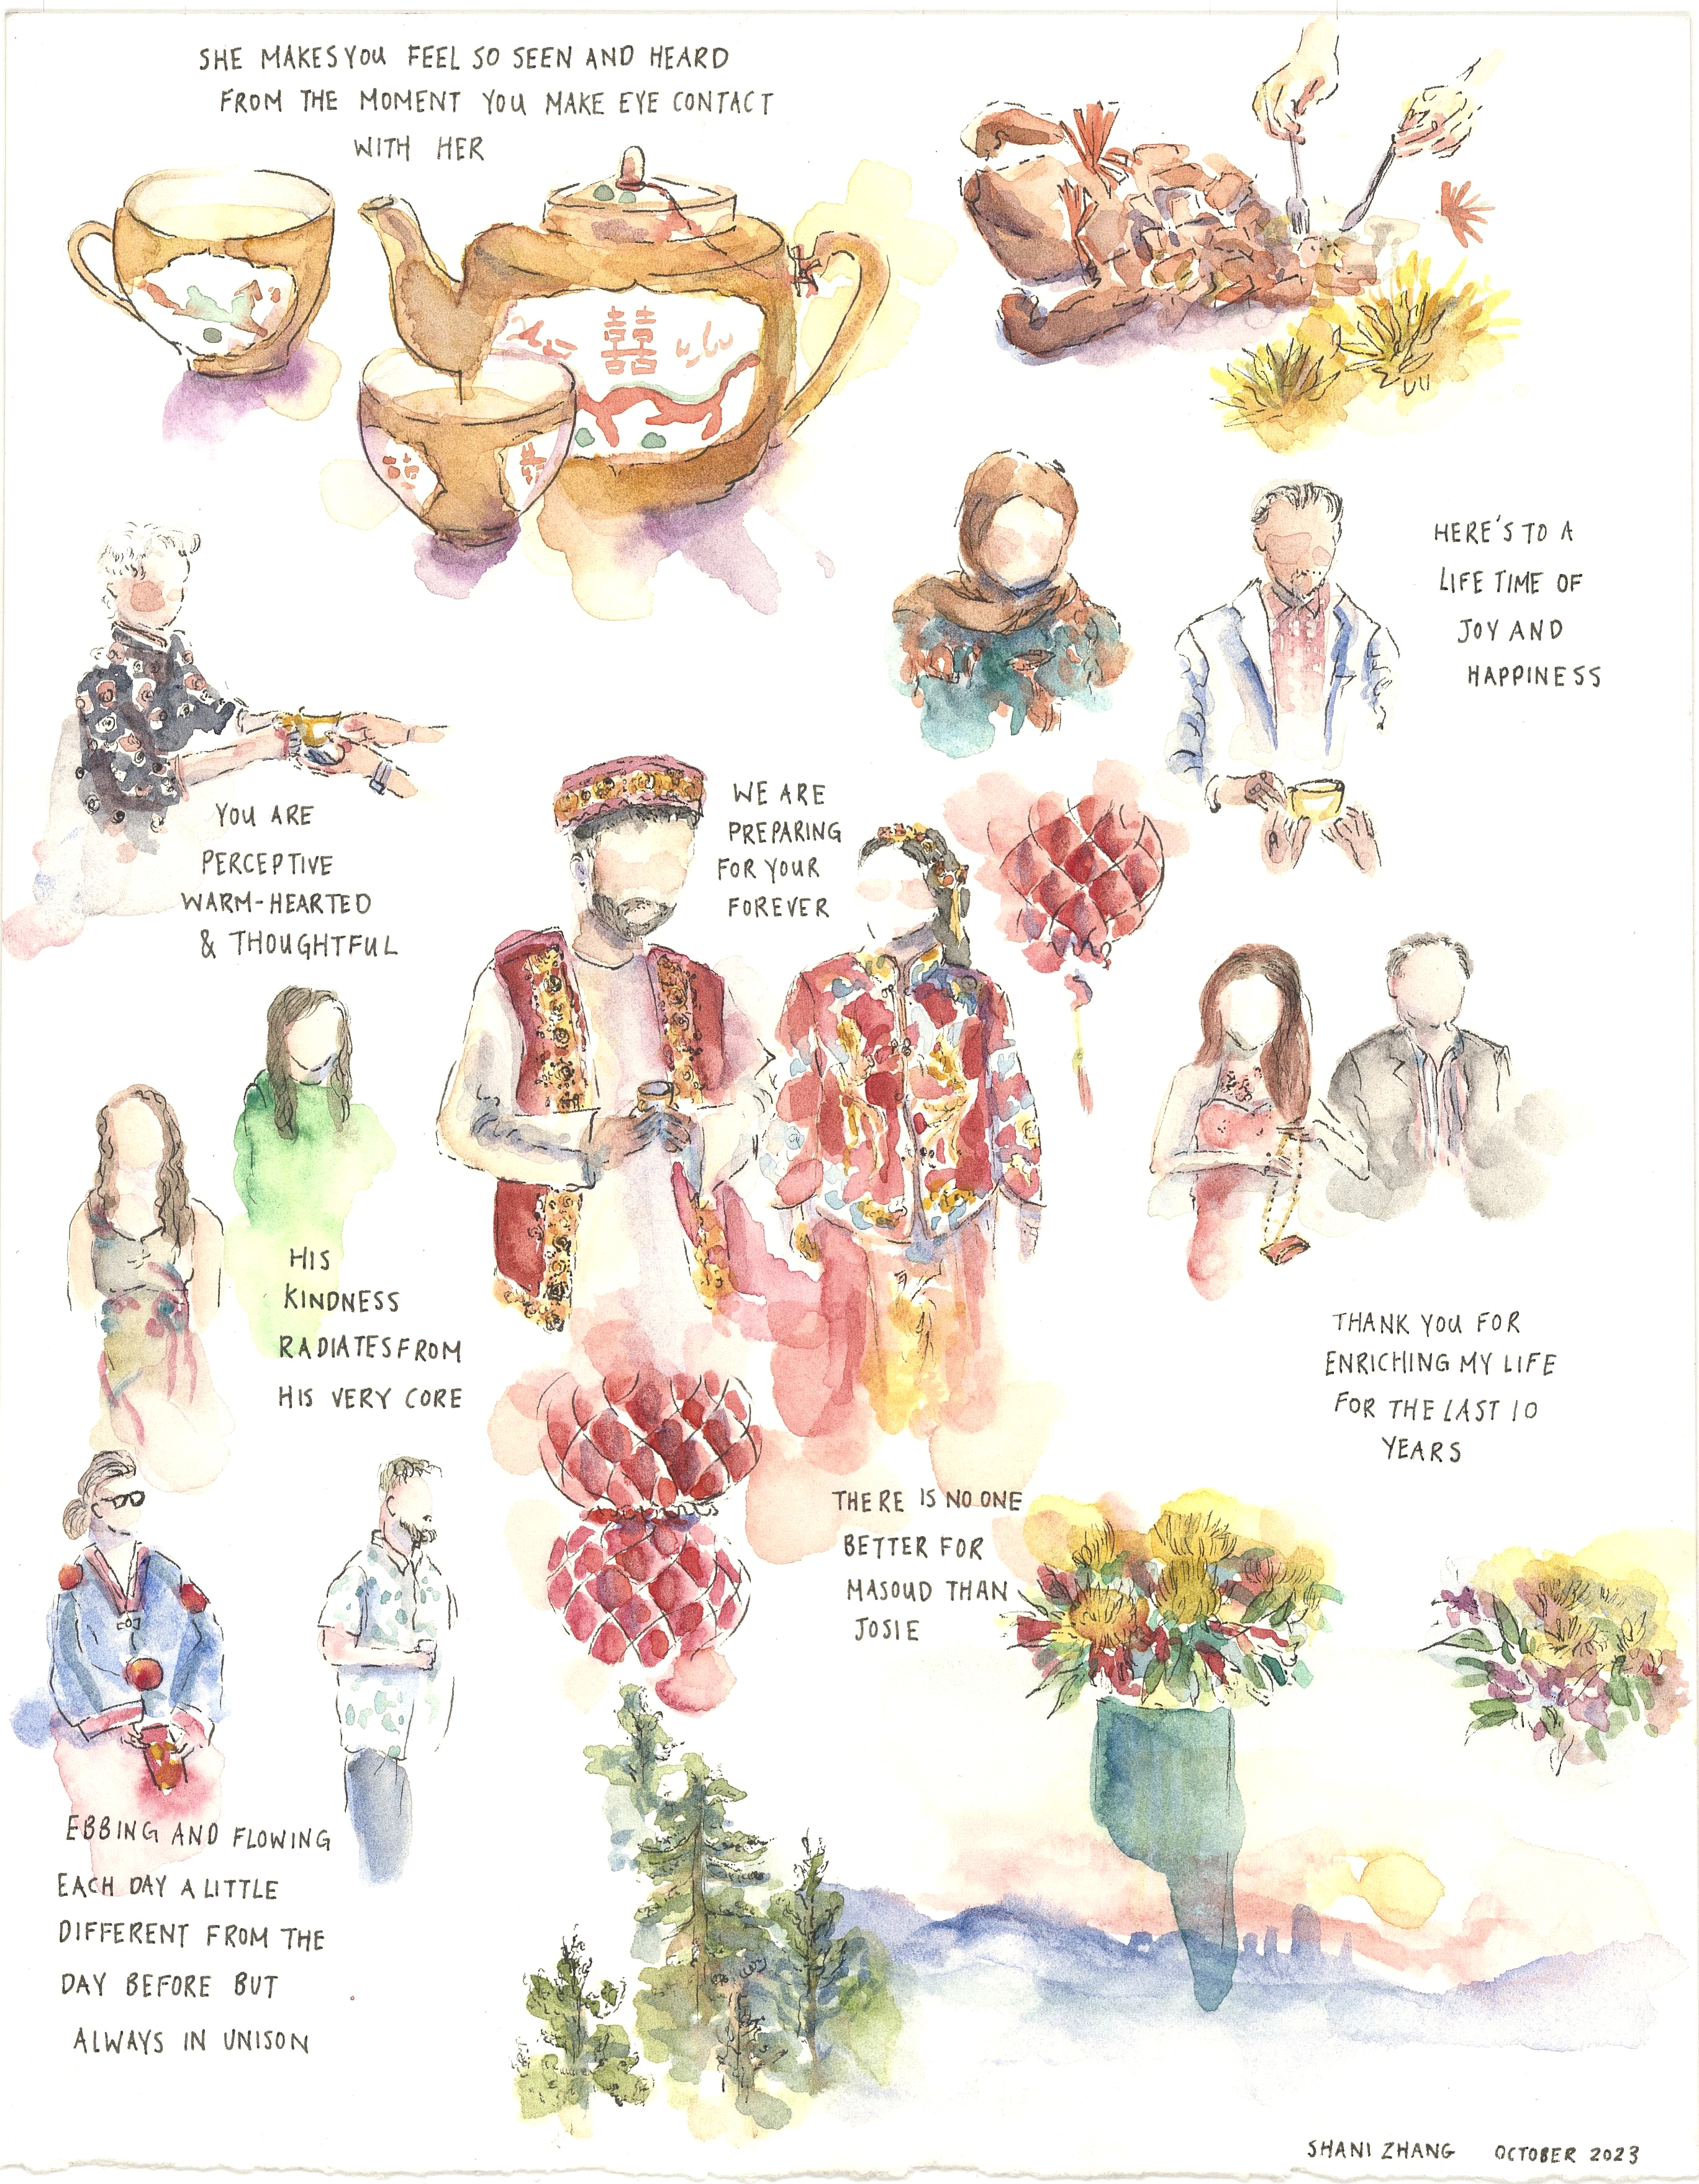 SHE MAKES YOU FEEL SO SEEN AND HEARD
FROM THE MOMENT YOU MAKE EYE CONTACT
WITH HER
囍
囍
囍
HERE'S TO A
LIFE TIME OF
JOY AND
HAPPINESS
YOU ARE
PERCEPTIVE
WARM-HEARTED
& THOUGHTFUL
WE ARE
PREPARING
FOR YOUR
FOREVER
HIS
KINDNESS
RADIATES FROM
HIS VERY CORE
THANK YOU FOR
ENRICHING MY LIFE
FOR THE LAST 10
YEARS
THERE IS NO ONE
BETTER FOR
MASOUD THAN
JOSIE
EBBING AND FLOWING
EACH DAY A LITTLE
DIFFERENT FROM THE
DAY BEFORE BUT
ALWAYS IN UNISON
SHANI ZHANG OCTOBER 2023